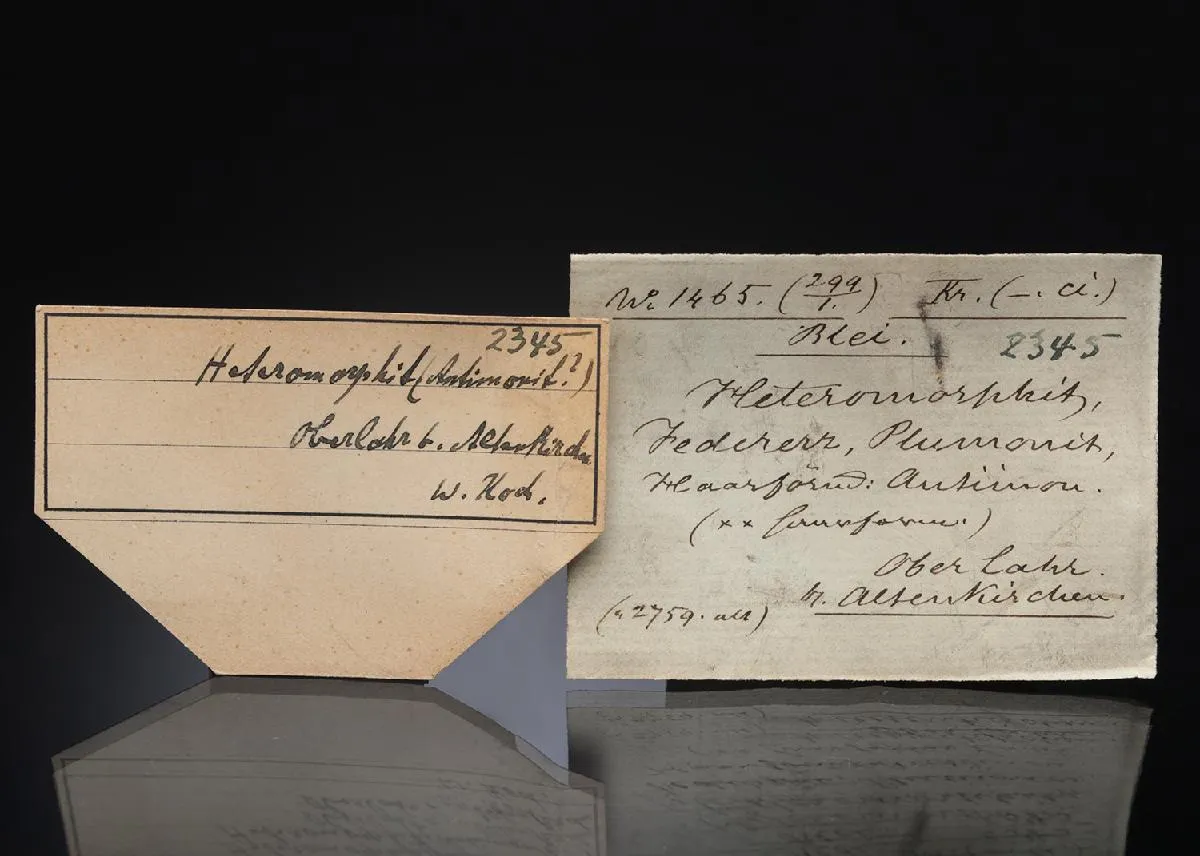 2345
Heteromorphit (Antimonit?)
Oberlahr b. Altenkirchen
W. Koch.
Nr. 1465. (299/1.) Kr. (–. ci.)
Blei. 2345
Heteromorphit,
Federerz, Plumonit,
Haarförm: Antimon.
(xx haarform.)
Oberlahr.
b. Altenkirchen.
2759. alt)